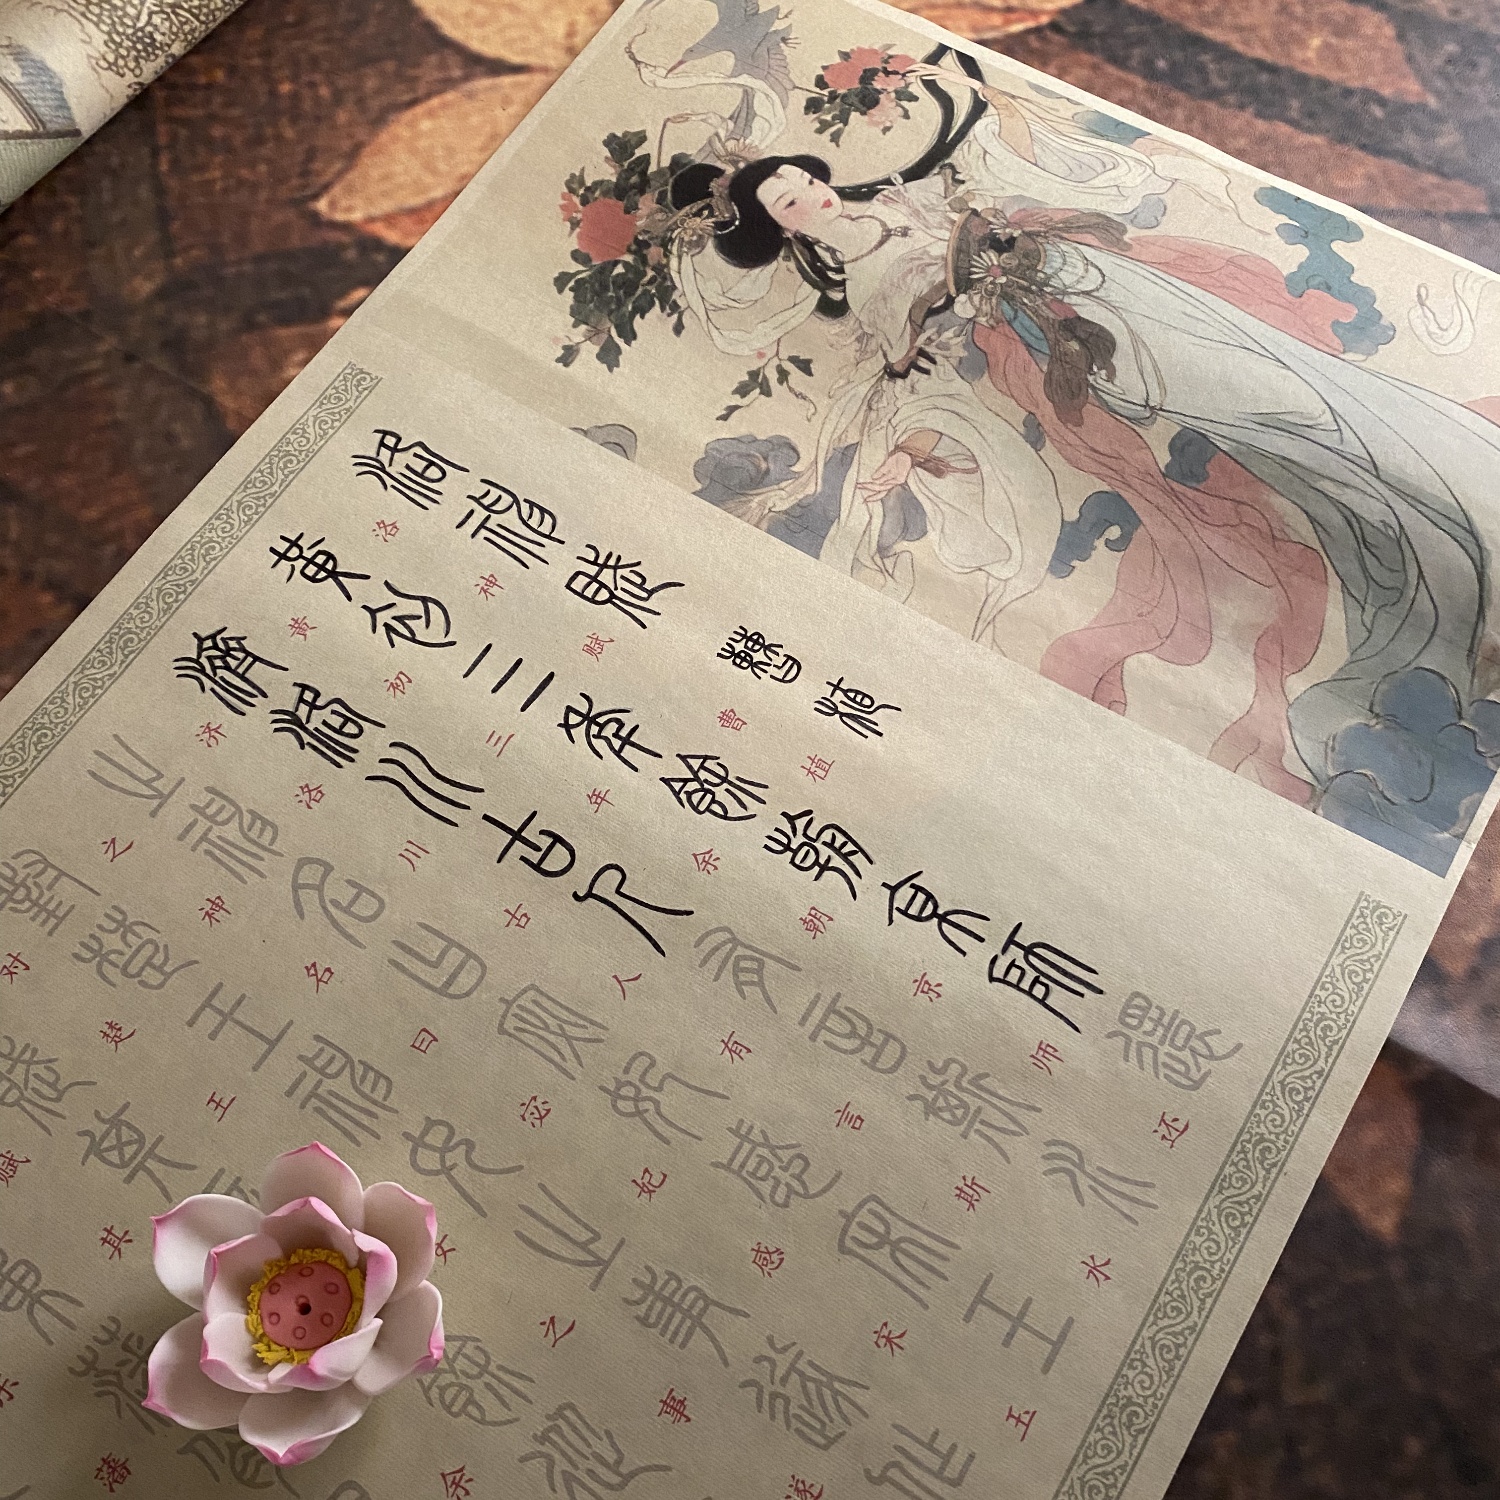 洛神賦 曹植
洛神赋 曹植
黃初三年餘朝京師還
黄初三年余朝京师还
濟洛川古人有言斯水
济洛川古人有言斯水
之神名曰宓妃感宋玉
之神名曰宓妃感宋玉
對楚王神女之事遂
对楚王女之事遂
賦其余
赋其余
東藩
东藩